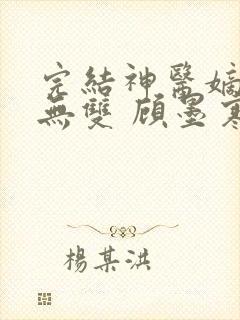 完結神醫嫡
無雙 顧墨寒
楊某洪